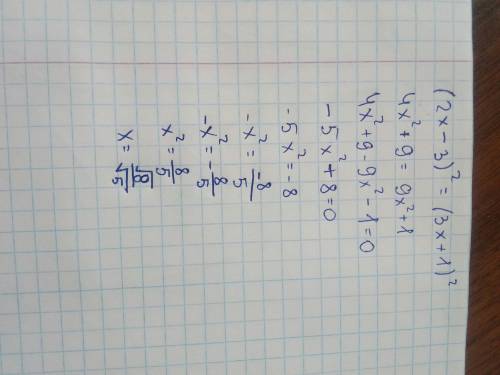 (2x-3)² = (3x+1)²
4x²+9 = 9x²+1
4x²+9-9x²-1=0
-5x²+8=0
-5x²=-8
-x²=-8/5
-x²=-8/5
x²=8/5
x=√8/√5